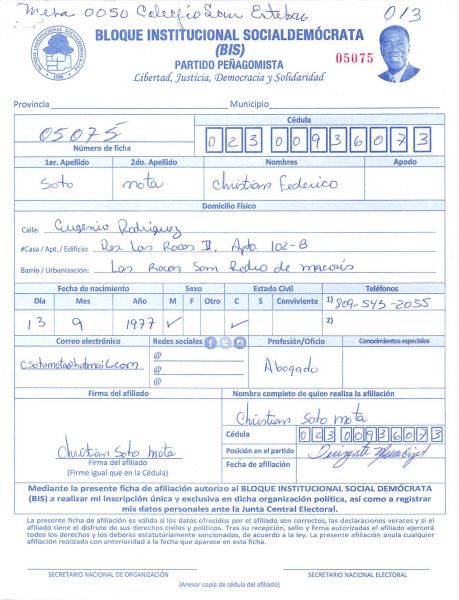 Mesa 0050 Colegio San Esteban 013
BLOQUE INSTITUCIONAL SOCIALDEMÓCRATA
(BIS)
05075
PARTIDO PEÑAGOMISTA
Libertad, Justicia, Democracia y Solidaridad
Provincia Municipio
05075
Número de ficha
Cédula
023 0093607 3
1er. Apellido 2do. Apellido Nombres Apodo
Soto mota Christian Federico
Domicilio Físico
Calle: Eugenio Rodriguez
#Casa / Apt. / Edificio: Res. Las Rocas II, Apto 102-B
Barrio / Urbanización: Las Rocas San Pedro de macoris
Fecha de nacimiento Sexo Estado Civil Teléfonos
Día Mes Año M F Otro C S Conviviente 1) 809-543-2055
13 9 1977 ✓ ✓ 2)
Correo electrónico Redes sociales Profesión/Oficio Conocimientos especiales
csotomota@hotmail.com @ @ @ Abogado
Firma del afiliado Nombre completo de quien realiza la afiliación
Christian Soto mota
Cédula 023 0093607 3
Christian Soto mota
Posición en el partido Dirigente
Firma del afiliado
(Firma igual que en la Cédula)
Fecha de afiliación
Mediante la presente ficha de afiliación autorizo al BLOQUE INSTITUCIONAL SOCIAL DEMÓCRATA
(BIS) a realizar mi inscripción única y exclusiva en dicha organización política, así como a registrar
mis datos personales ante la Junta Central Electoral.
La presente ficha de afiliación es válida si los datos ofrecidos por el afiliado son correctos, las declaraciones veraces y si el
afiliado tiene el disfrute de sus derechos civiles y políticos. Tras su recepción, sello y firma autorizada el afiliado ejercerá
todos los derechos y los deberes estatutariamente sancionados, de acuerdo a la ley. La presente afiliación anula cualquier
afiliación realizada con anterioridad a la fecha que aparece en esta ficha.
SECRETARIO NACIONAL DE ORGANIZACIÓN SECRETARIO NACIONAL ELECTORAL
(Anexar copia de cédula del afiliado)